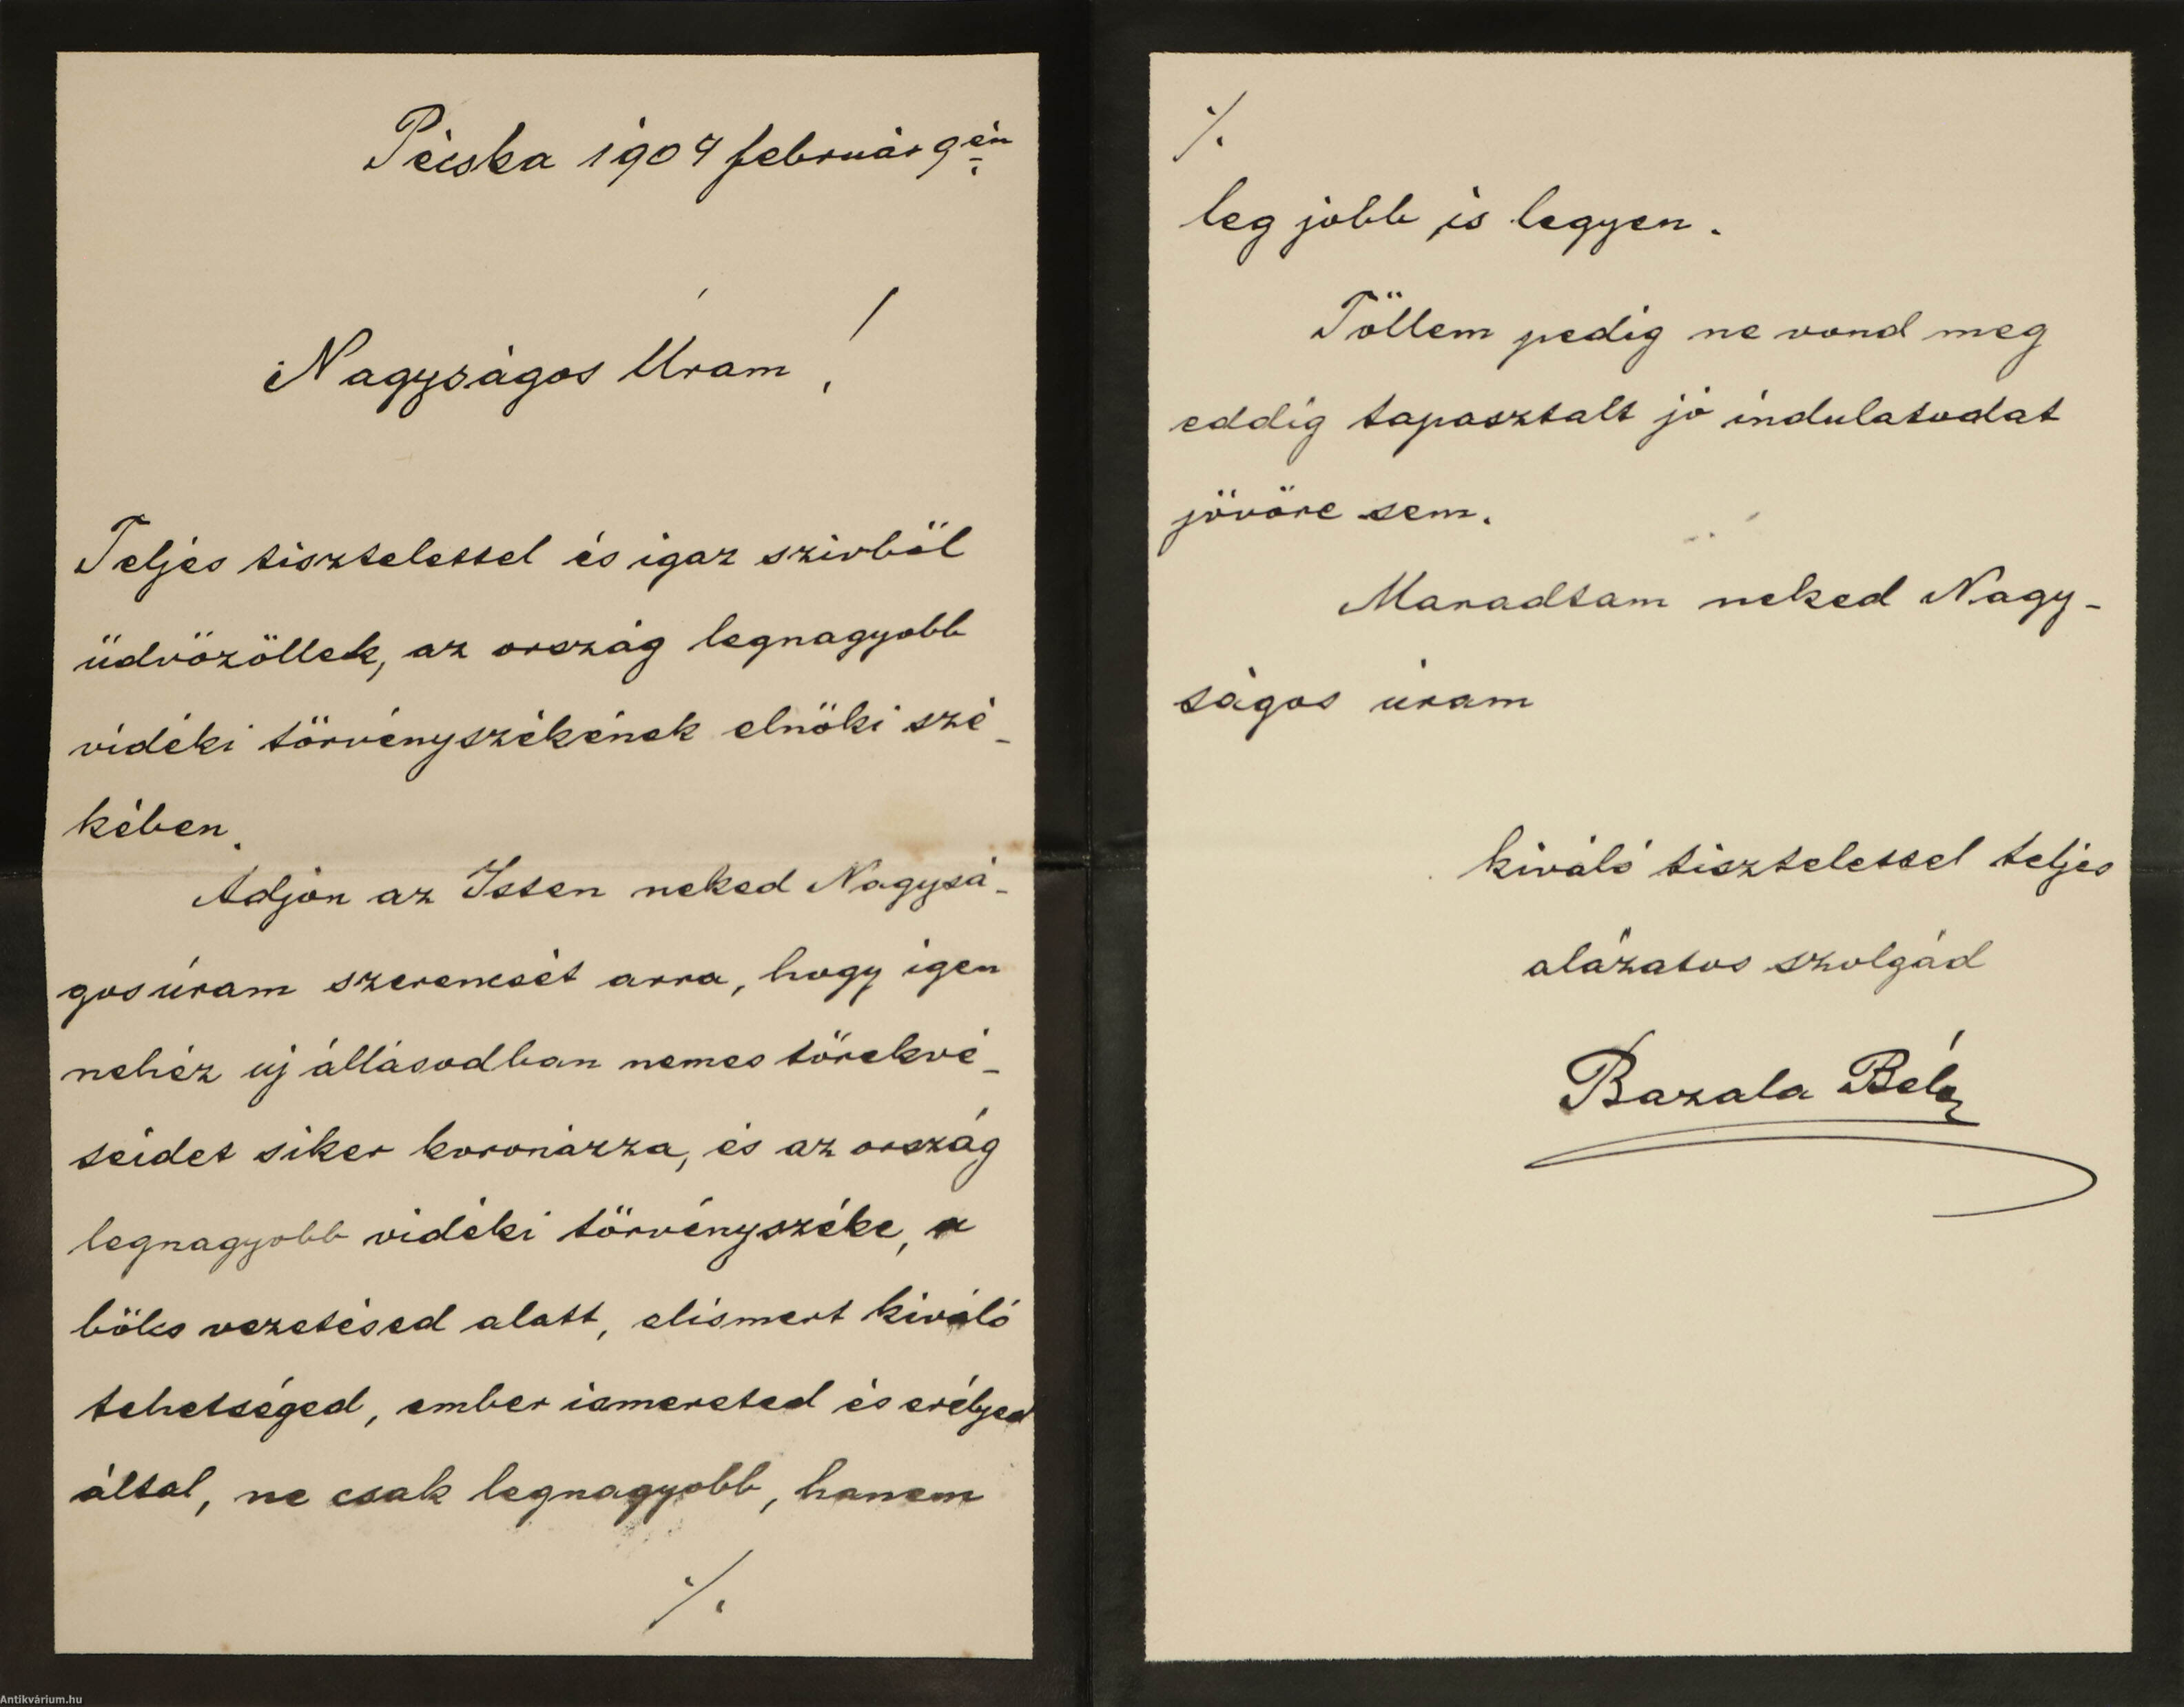 Pécska 1904 február 9én
Nagyságos Uram!
Teljes tisztelettel és igaz szivböl
üdvözöllek, az ország legnagyobb
vidéki törvényszékének elnöki szé-
kében.
Adjon az Isten neked Nagysá-
gos úram szerencsét arra, hogy igen
nehéz új állásodban nemes törekvé-
seidet siker koronázza, és az ország
legnagyobb vidéki törvényszéke, a
bölcs vezetésed alatt, elismert kiváló
tehetséged, ember ismereted és erélyed
által, ne csak legnagyobb, hanem
./.
./.
leg jobb is legyen.
Töllem pedig ne vond meg
eddig tapasztalt jó indulatodat
jövöre sem.
Maradtam neked Nagy-
ságos úram
kiváló tisztelettel teljes
alázatos szolgád
Bazala Béla
Antikvárium.hu